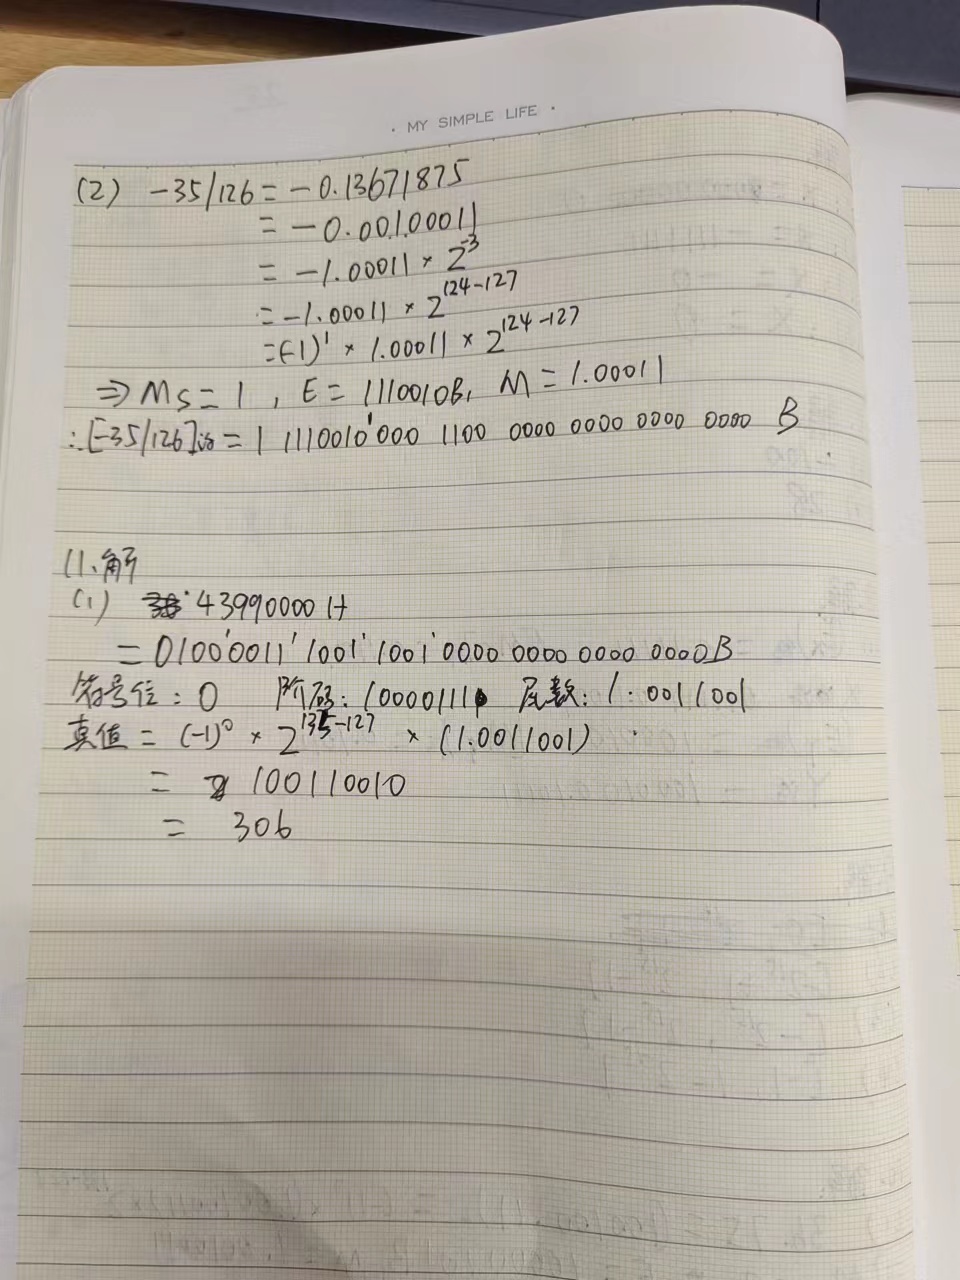 · MY SIMPLE LIFE ·
(2) -35/126 = -0.13671875
= -0.00100011
= -1.00011 × 2^-3
= -1.00011 × 2^124-127
= (-1)^1 × 1.00011 × 2^124-127
⇒ Ms = 1, E = 1110010B, M = 1.00011
∴ [-35/126]浮 = 1 1110010'000 1100 0000 0000 0000 0000 B
11、解
(1) 43990000 H
= 0100'0011'1001'1001'0000 0000 0000 0000B
符号位: 0 阶码: 10000111 尾数: 1.0011001
真值 = (-1)^0 × 2^135-127 × (1.0011001)
= 100110010
= 306